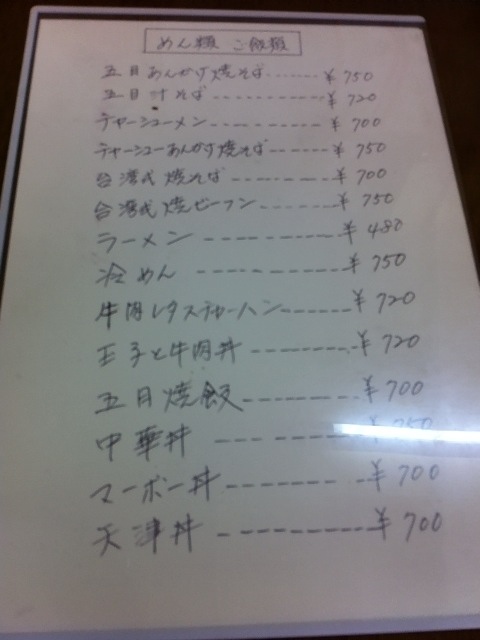 めん類 ご飯類
五目あんかけ焼そば------¥750
五目汁そば----------¥720
チャーシューメン----------¥700
チャーシューあんかけ焼そば------¥750
台湾式焼そば----------¥700
台湾式焼ビーフン--------¥750
ラーメン------------¥480
冷めん------------¥750
牛肉レタスチャーハン------¥720
玉子と牛肉丼--------¥720
五目焼飯----------¥700
中華丼----------¥750
マーボー丼----------¥700
天津丼----------¥700